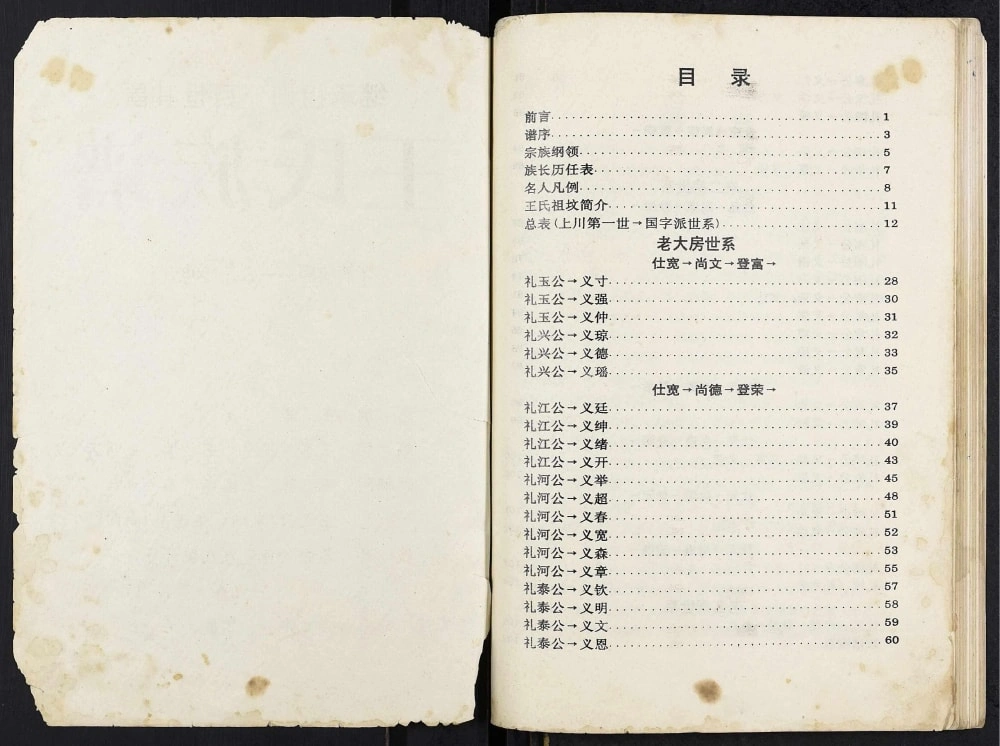 目 录
前言 1
谱序 3
宗族纲领 5
族长历任表 7
名人凡例 8
王氏祖坟简介 11
总表(上川第一世→国字派世系) 12
老大房世系
仕宽→尚文→登富→
礼玉公→义寸 28
礼玉公→义强 30
礼玉公→义仲 31
礼兴公→义琼 32
礼兴公→义德 33
礼兴公→义瑶 35
仕宽→尚德→登荣→
礼江公→义廷 37
礼江公→义绅 39
礼江公→义绪 40
礼江公→义开 43
礼河公→义举 45
礼河公→义超 48
礼河公→义春 51
礼河公→义宽 52
礼河公→义森 53
礼河公→义章 55
礼泰公→义钦 57
礼泰公→义明 58
礼泰公→义文 59
礼泰公→义恩 60